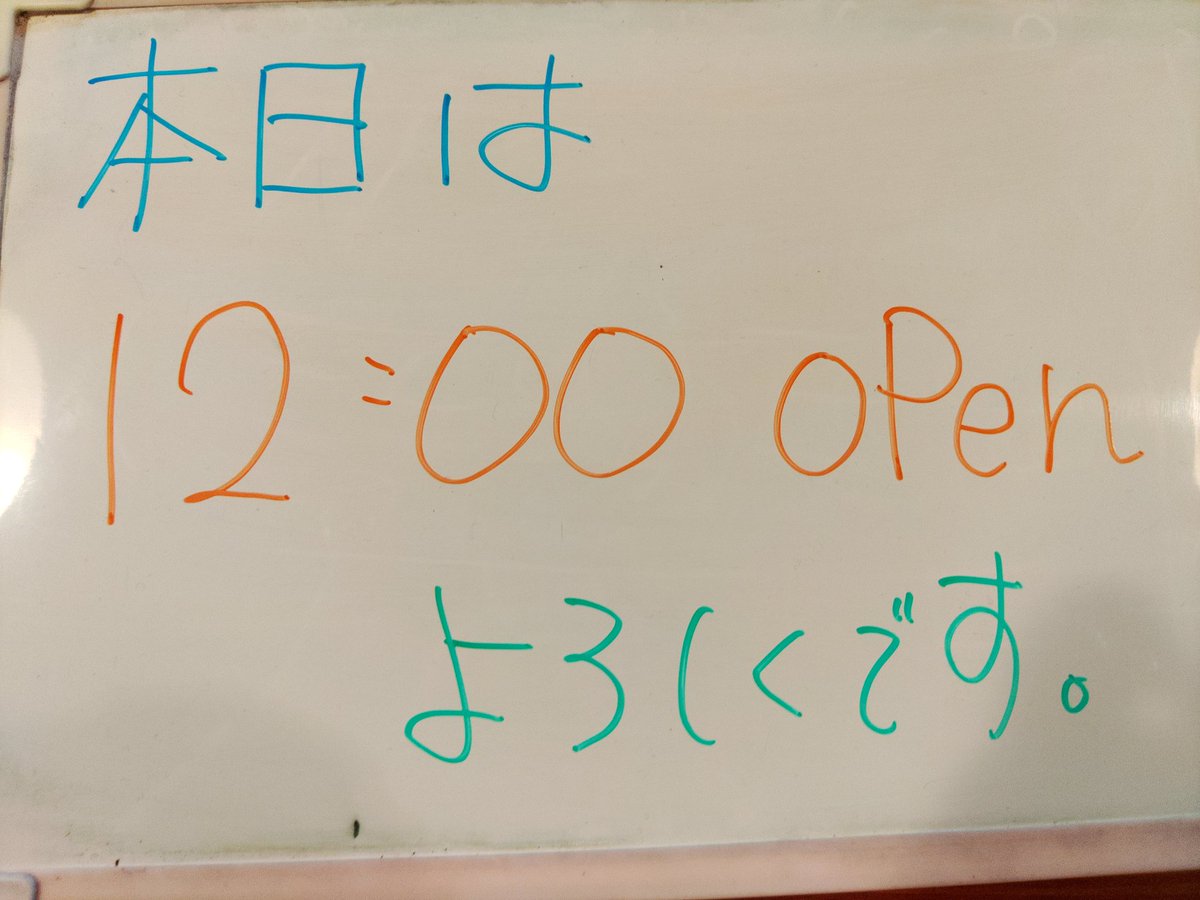 本日は
12:00 open
よろしくです。